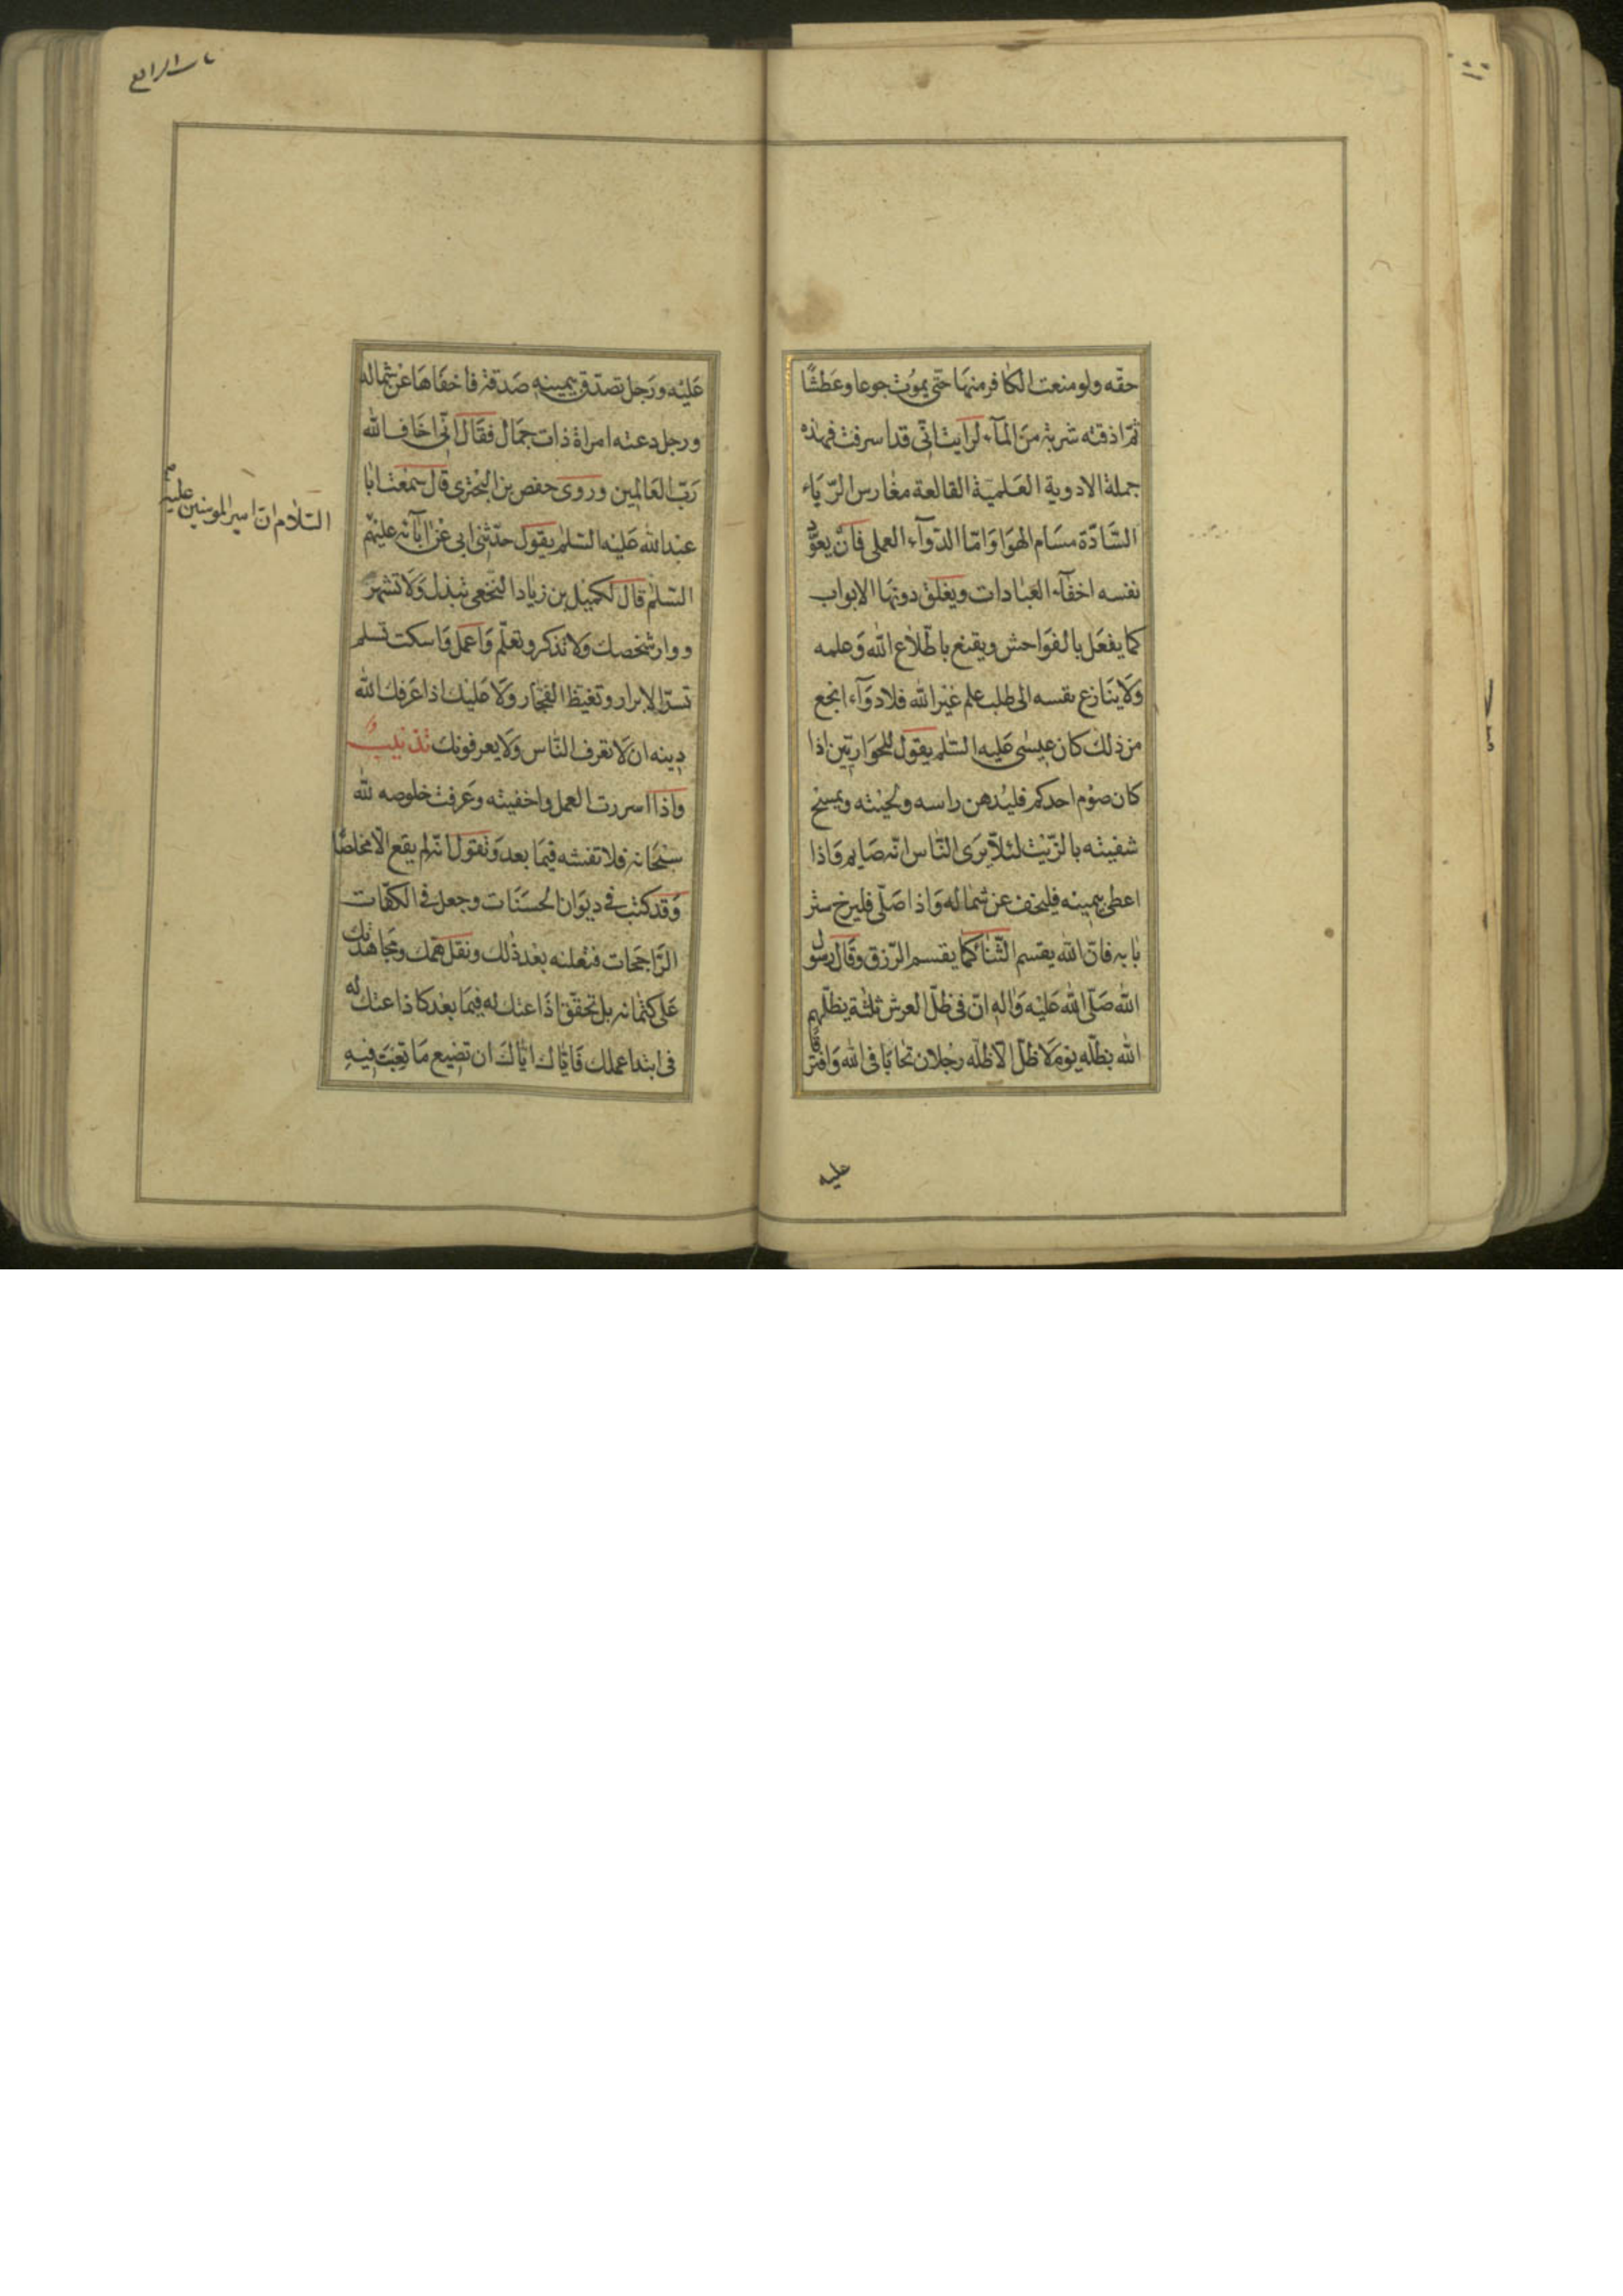 حقّه ولو منعت الكافر منها حتّى يموت جوعا وعطشًا
ثمّ اذقته شربة من المآء لرايت انّى قد اسرفت فهذه
جملة الادوية العلمية القالعة مغارس الرّياء
السّادّة مسام الهوا وامّا الدّوآء العملى فان يعوّد
نفسه اخفآء العبادات ويغلق دونها الابواب
كما يفعل بالفواحش ويقنع باطّلاع الله وعلمه
ولا ينازع نفسه الى طلب علم غير الله فلا دوآء انجع
من ذلك كان عيسى عليه السّلم يقول للحواريّين اذا
كان صوم احدكم فليدهن راسه ولحيته ويمسح
شفيته بالزّيت لئلّا يرى النّاس انّه صايم واذا
اعطى بيمينه فليخف عن شماله واذا صلّى فليرخ ستر
بابه فانّ الله يقسم الثّناء كما يقسم الرّزق وقال رسول
الله صلّى الله عليه واله انّ فى ظلّ العرش ثلثة يظلّهم
الله بظلّه يوم لا ظلّ الّا ظلّه رجلان تحابّا فى الله وافترقا
عليه
عليه ورجل تصدّق بيمينه صدقة فاخفاها عن شماله
ورجل دعته امراة ذات جمال فقال انّى اخاف الله
ربّ العالمين وروى حفص بن البخترى قال سمعت ابا
عبد الله عليه السّلم يقول حدّثنى ابى عن آبآئه عليهم
السّلم قال لكميل بن زياد النّخعى تبذل ولا تشهر
ووار شخصك ولا تذكر وتعلّم واعمل واسكت تسلم
تسرّ الابرار وتغيظ الفجّار ولا عليك اذا عرفك الله
دينه ان لا تعرف النّاس ولا يعرفونك تذنيب
واذا اسررت العمل واخفيته وعرفت خلوصه لله
سبحانه فلا تفشه فيما بعد وتقول انّه لم يقع الّا مخلصًا
وقد كتب فى ديوان الحسنات وجعل فى الكفّات
الرّاجحات فتعلنه بعد ذلك ونقل همّك ومجاهدتك
على كتمانه بل تحقّق اذاعتك له فيما بعد كاذاعتك له
فى ابتدا عملك فايّاك ايّاك ان تضيع ما تعبت فيه
السّلام انّ امير المومنين عليه